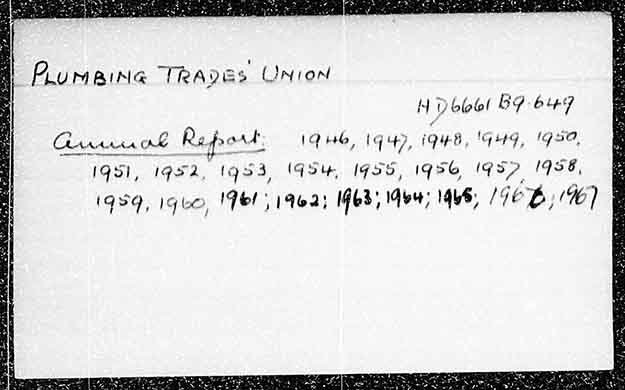 PLUMBING TRADES' UNION
HD6661 B9.649
Annual Report. 1946, 1947, 1948, 1949, 1950,
1951, 1952, 1953, 1954, 1955, 1956, 1957, 1958,
1959, 1960, 1961; 1962; 1963; 1964; 1965; 1966; 1967